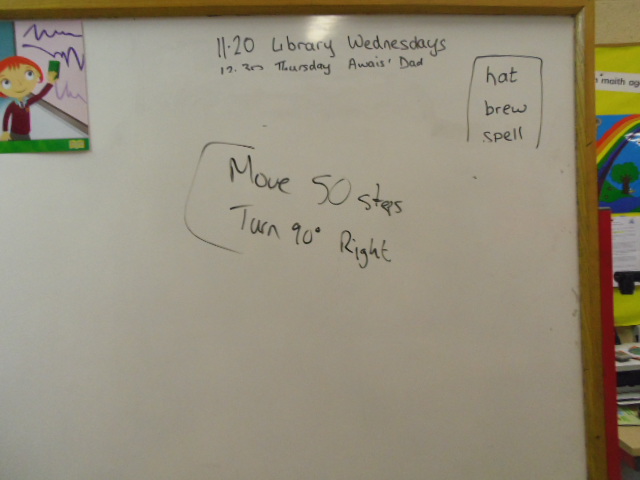 11.20 Library Wednesdays
Thursday Awais' Dad
hat
brew
spell
Move 50 steps
Turn 90° Right
maith